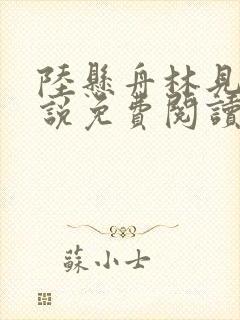 陸懸舟林見
說免費閱讀
蘇小士